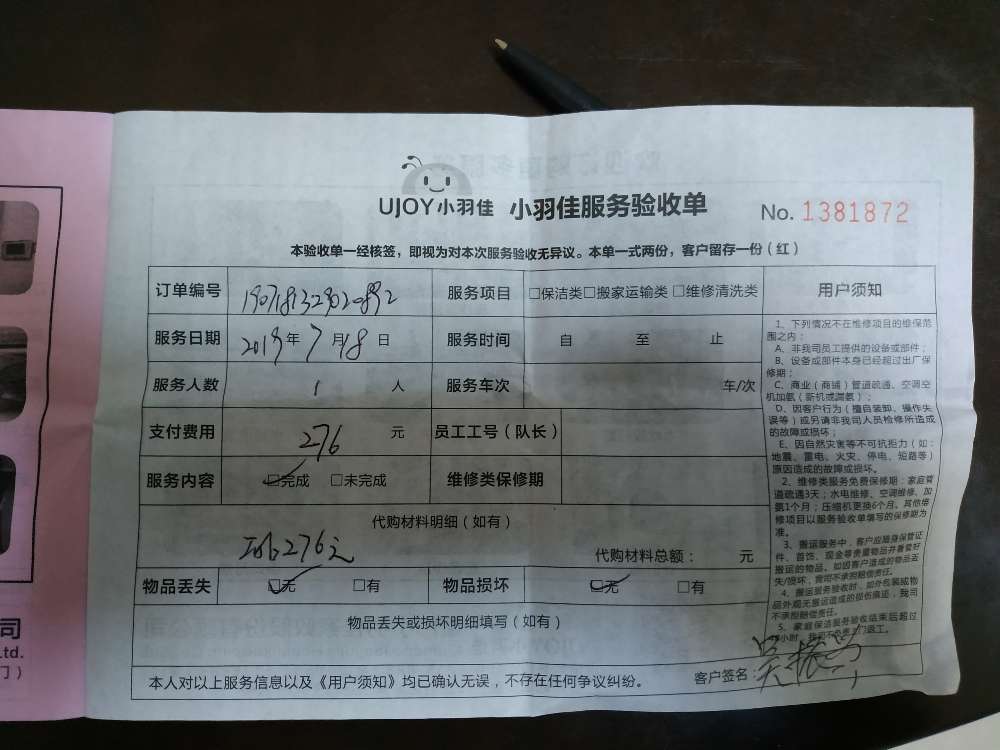 UJOY小羽佳 小羽佳服务验收单 No. 1381872
本验收单一经核签，即视为对本次服务验收无异议。本单一式两份，客户留存一份（红）
订单编号 服务项目 □保洁类□搬家运输类 □维修清洗类
服务日期 2019年 7月18日 服务时间 自 至 止
服务人数 1 人 服务车次 车/次
支付费用 276 元 员工工号（队长）
服务内容 □完成 □未完成 维修类保修期
代购材料明细（如有）
276元 代购材料总额： 元
物品丢失 □无 □有 物品损坏 □无 □有
物品丢失或损坏明细填写（如有）
本人对以上服务信息以及《用户须知》均已确认无误，不存在任何争议纠纷。
客户签名：
用户须知
1、下列情况不在维修项目的维保范
围之内：
A、非我司员工提供的设备或部件；
B、设备或部件本身已经超过出厂保
修期；
C、商业（商铺）管道疏通、空调空
机加氨（新机或漏氨）；
D、因客户行为（擅自装卸、操作失
误等）或另请非我司人员检修所造成
的故障或损坏；
E、因自然灾害等不可抗拒力（如：
地震、雷电、火灾、停电、短路等）
原因造成的故障或损坏。
2、维修类服务免费保修期：家庭管
道疏通3天；水电维修、空调维修、加
氨1个月；压缩机更换6个月。其他维
修项目以服务验收单填写的保修期为
准。
3、搬运服务中，客户应随身保管证
件、首饰、现金等贵重物品并看管好
搬运的物品。如因客户造成的物品丢
失/损坏，我司不承担赔偿责任。
4、搬运服务验收时，如外包装或物
品外观无搬运造成的损伤痕迹，我司
不承担赔偿责任。
5、家庭保洁服务验收结束后超过
司
Ltd.
门）